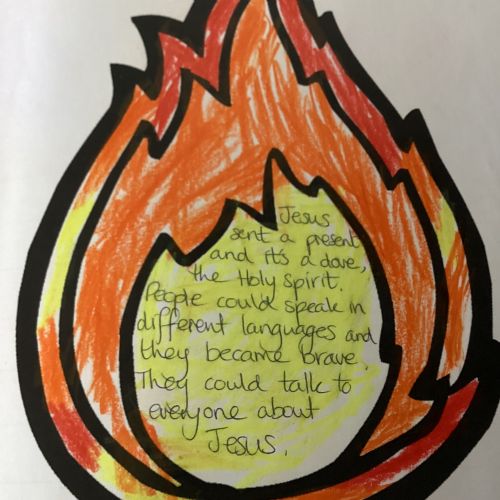 Jesus
sent a present
and it's a dove,
the Holy Spirit.
People could speak in
different languages and
they became brave.
They could talk to
everyone about
Jesus.